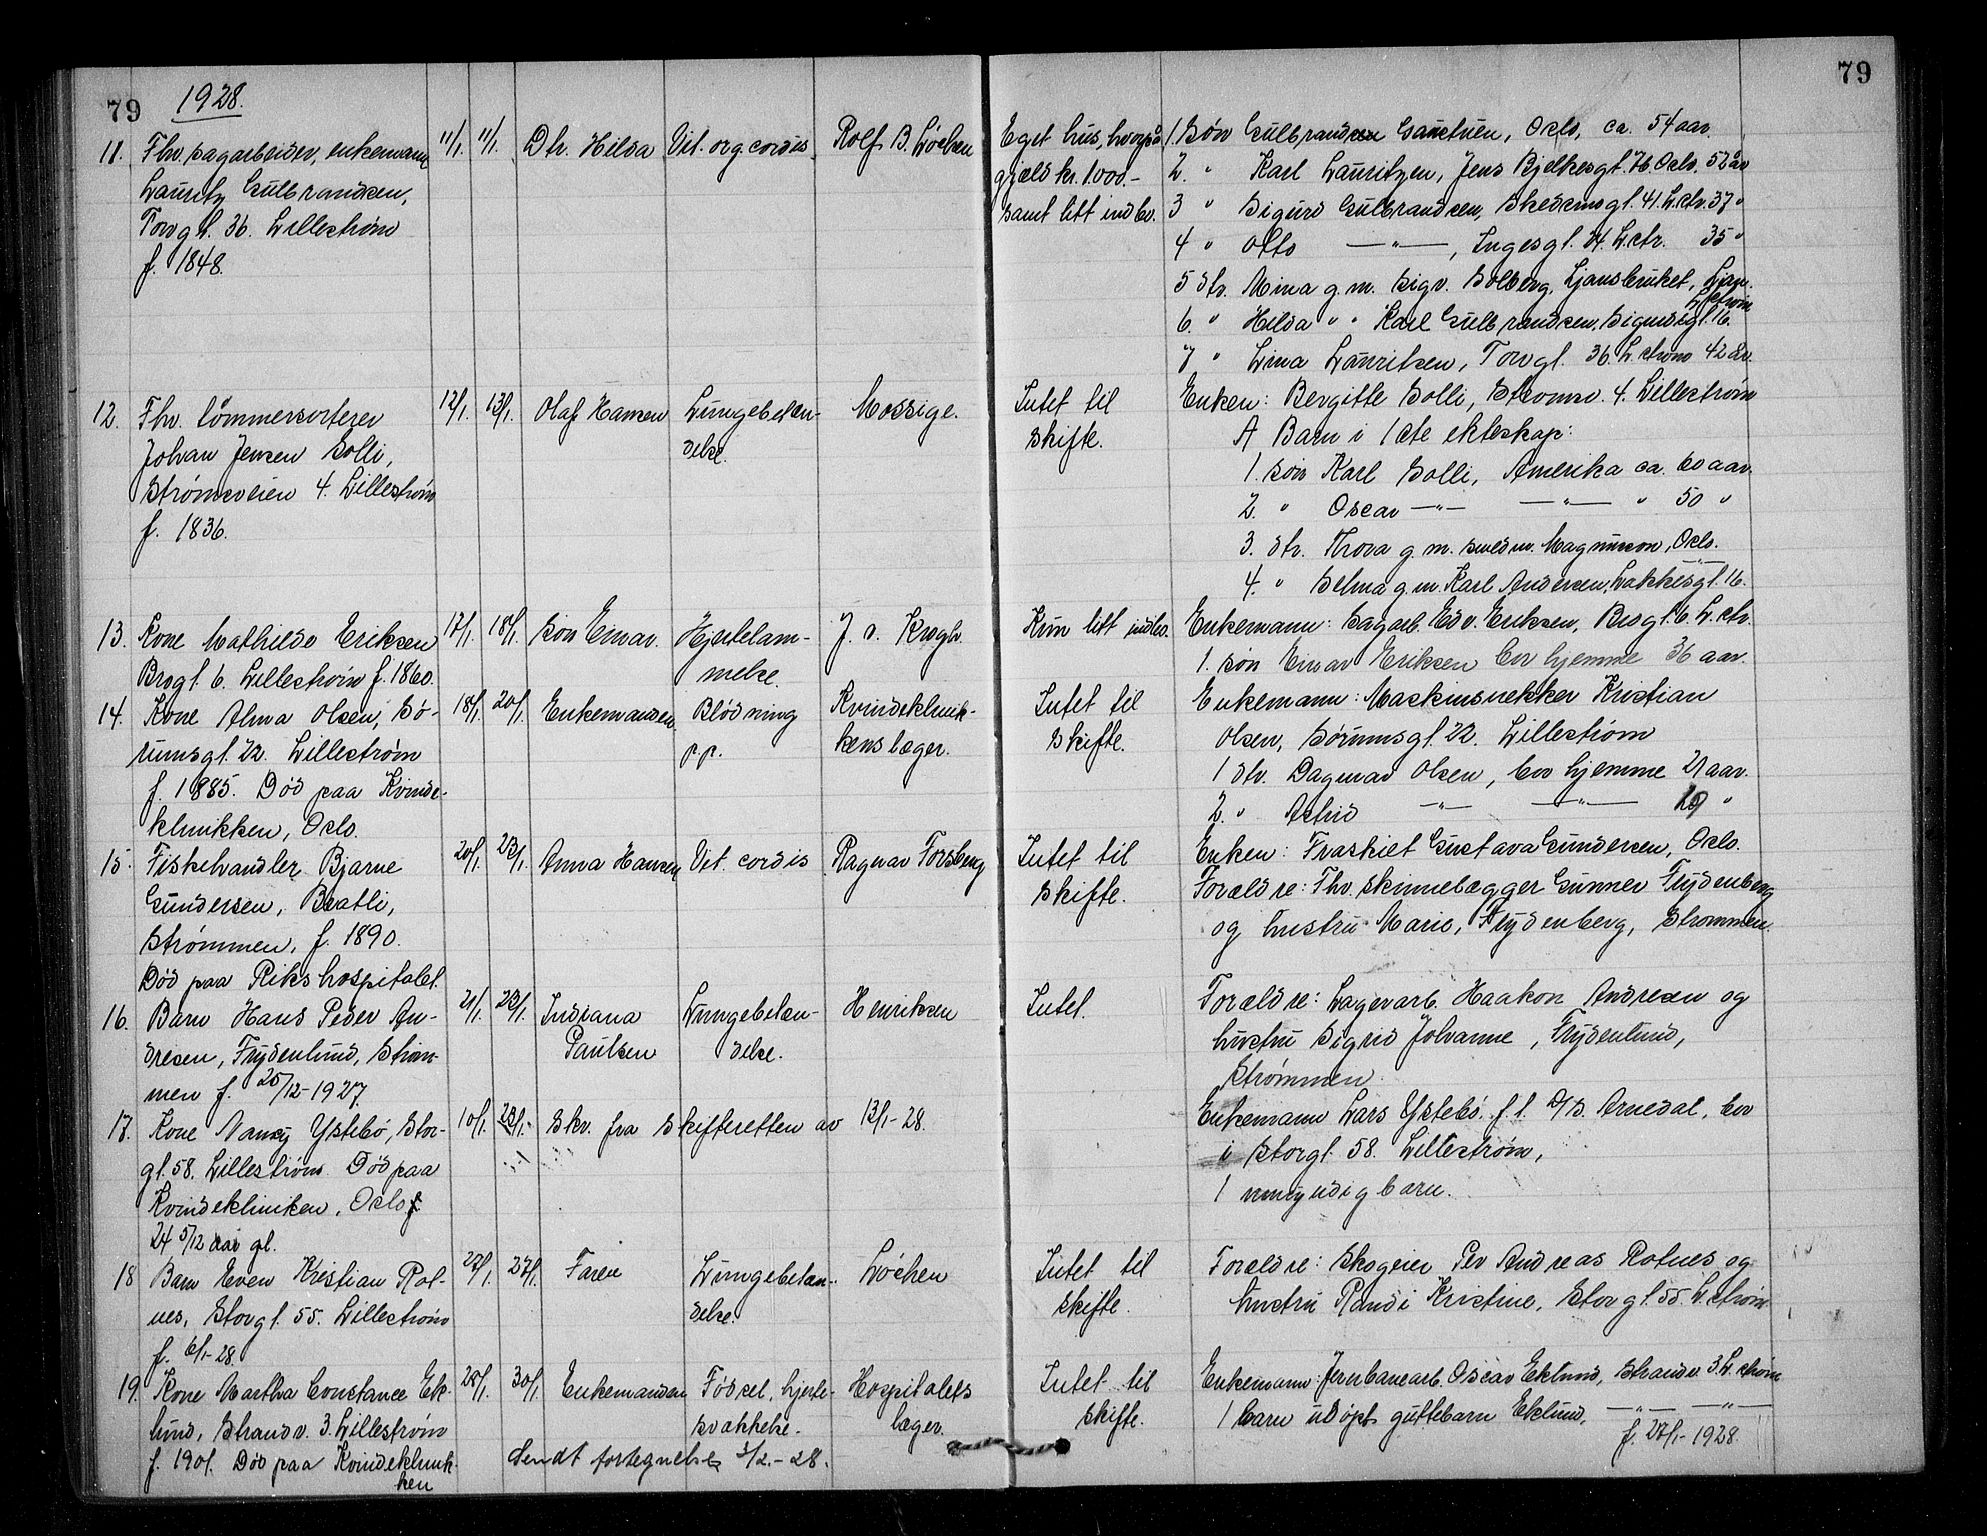 79 1928. 79
11. Fhv. sagarbeider, enkemann 11/1. 11/1. Dtr. Hilda Vit. org. cordis. Rolf B. Løchen
Lauritz Gulbrandsen,
Torvgt. 36. Lillestrøm
f. 1848.
Eget hus, hvorpå
gjæld kr. 1000.-
samt litt indbo.
1. Søn Gulbrandsen, Oslo, ca. 54 aar.
2. " Karl Lauritzen, Jens Bjelkesgt. 76 Oslo. 52 år
3 " Sigurd Gulbrandsen, Skedsmogt. 41. L.str. 37 "
4 " Otto —"—, Ingesgt. 24. L.str. 35 "
5 dtr. Mina g.m. Sigv. Solberg, Ljansbruket, Ljan.
6. " Hilda " " Karl Gulbrandsen, Sigurdsgt. 16. L.strøm
7 " Lina Lauritsen, Torvgt. 36 L.strøm 42 år.
12. Fhv. tømmersorterer 12/1. 13/1. Olaf Hansen Lungebetæn- Mossige.
Johan Jensen Solli, delse.
Strømsveien 4. Lillestrøm
f. 1836.
Intet til
skifte.
Enken: Bergitte Solli, Strømsv. 4. Lillestrøm
A Barn i 1ste ekteskap:
1. søn Karl Solli, Amerika ca. 60 aar.
2. " Oscar —"— —"— " 50 "
3. dtr. Thora g.m. smedm. Magnusson, Oslo.
4. " Selma g.m. Karl Andersen, Lakkegt. 16.
13. Kone Mathilde Eriksen 17/1. 18/1. Søn Einar. Hjertelam- J. v. Krogh.
Brogt. 6. Lillestrøm f. 1860. melse.
Kun litt indbo.
Enkemann: Sagarb. Edv. Eriksen, Brogt. 6. L.str.
1. søn Einar Eriksen bor hjemme 36 aar.
14. Kone Alma Olsen, Sø- 18/1. 20/1. Enkemanden Blødning Kvindeklinik-
rumsgt. 22. Lillestrøm p.p. kens læger.
f. 1885. Død paa Kvinde-
klinikken, Oslo.
Intet til
skifte.
Enkemann: Maskinsnekker Kristian
Olsen, Sørumsgt. 22. Lillestrøm
1 dtr. Dagmar Olsen, bor hjemme 21 aar.
2. " Astrid —"— —"— 19 "
15. Fiskehandler Bjarne 20/1. 23/1. Anna Hansen Vit. cordis Ragnar Forsberg
Gundersen, Bratli,
Strømmen, f. 1890.
Død paa Rikshospitalet.
Intet til
skifte.
Enken: Fraskilt Gustava Gundersen, Oslo.
Forældre: Fhv. skinnelægger Gunner Frydenberg
og hustru Marie, Frydenberg, Strømmen.
16. Barn Hans Peder An- 21/1. 23/1. Indiana Lungebetæn- Henriksen
dresen, Frydenlund, Strøm- Paulsen delse.
men f. 25/12-1927
Intet.
Forældre: Lagerarb. Haakon Andresen og
hustru Sigrid Johanne, Frydenlund,
Strømmen.
17. Kone Nancy Ystebø, Stor- 10/1. 23/1.- Skr. fra Skifteretten av 13/1-28.
gt. 58. Lillestrøm. Død paa
Kvindekliniken, Oslo
24 5/12 aar gl.
Enkemann Lars Ystebø. f.t. D/S. Arnedal, bor
i Storgt. 58. Lillestrøm,
1 umyndig barn.
18 Barn Even Kristian Rot- 27/1. 27/1. Faren Lungebetæn- Løchen
nes, Storgt. 55. Lillestrøm delse.
f. 6/1-28.
Intet til
skifte.
Forældre: Skogeier Per Andreas Rotnes og
hustru Randi Kristine, Storgt. 55. L.strøm
19. Kone Martha Constance Ek- 28/1. 30/1. Enkemanden Fødsel, hjerte- Hospitalets
lund, Strandv. 3. Lillestrøm svækkelse. læger.
f. 1901. Død paa Kvindeklinik- Sendt fortegnelse 3/2.-28.
ken
Intet til
skifte.
Enkemann: Jernbanearb. Oscar Eklund, Strandv. 3. L.strøm
1 barn udøpt guttebarn Eklund, —"— —"—
f. 27/1-1928